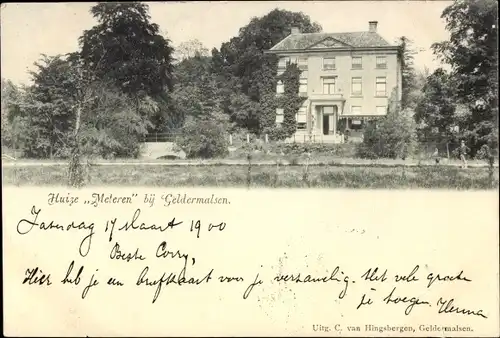 Huize „Meteren” bij Geldermalsen.
Zaterdag 17 Maart 1900
Beste Corry,
Hier heb je een briefkaart voor je verzameling. Met vele groeten
je toegen. Herma
Uitg. C. van Hingsbergen, Geldermalsen.